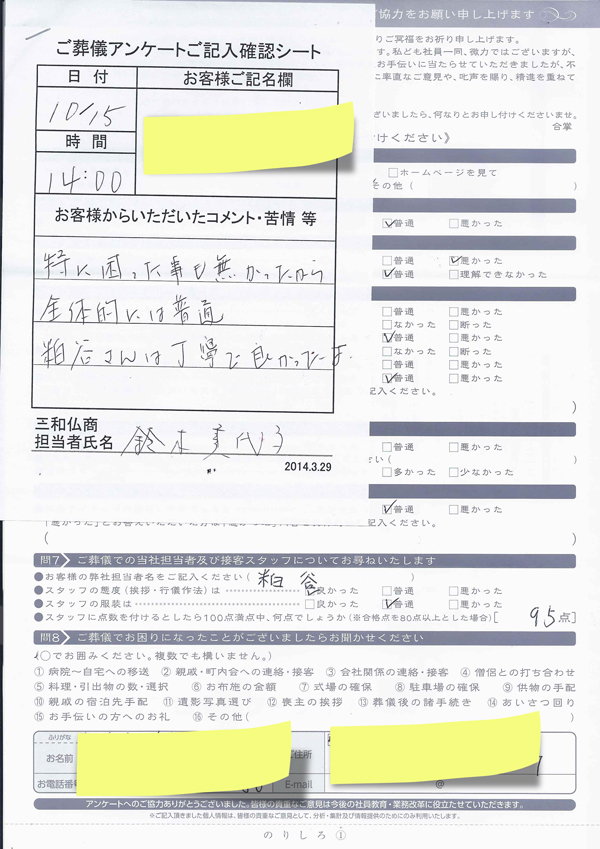 ご葬儀アンケートご記入確認シート
日付
お客様ご記名欄
10/15
時間
14:00
お客様からいただいたコメント・苦情 等
特に困った事も無かったから
全体的には普通
粕谷さんは丁寧で良かったよ。
三和仏商
担当者氏名 鈴木美代子
2014.3.29
協力をお願い申し上げます
りご冥福をお祈り申し上げます。
す。私ども社員一同、微力ではございますが、
お手伝いに当たらせていただきましたが、不
に率直なご意見や、叱声を賜り、精進を重ねて
ざいましたら、何なりとお申し付けくださいませ。
合掌
けください》
□ホームページを見て
その他( )
☑普通 □悪かった
□普通 ☑悪かった
☑普通 □理解できなかった
□普通 □悪かった
□なかった □断った
☑普通 □悪かった
□なかった □断った
□普通 □悪かった
☑普通 □悪かった
記入ください。
)
□普通 □悪かった
さい(
□多かった □少なかった
☑普通 □悪かった
記入ください。
( )
問7 ご葬儀での当社担当者及び接客スタッフについてお尋ねいたします
●お客様の弊社担当者名をご記入ください( 粕谷 )
●スタッフの態度(挨拶・行儀作法)は ☑良かった □普通 □悪かった
●スタッフの服装は □良かった ☑普通 □悪かった
●スタッフに点数を付けるとしたら100点満点中、何点でしょうか(※合格点を80点以上とした場合)[ 95 点]
問8 ご葬儀でお困りになったことがございましたらお聞かせください
(○でお囲みください。複数でも構いません。)
①病院～自宅への移送 ②親戚・町内会への連絡・接客 ③会社関係の連絡・接客 ④僧侶との打ち合わせ
⑤料理・引出物の数・選択 ⑥お布施の金額 ⑦式場の確保 ⑧駐車場の確保 ⑨供物の手配
⑩親戚の宿泊先手配 ⑪遺影写真選び ⑫喪主の挨拶 ⑬葬儀後の諸手続き ⑭あいさつ回り
⑮お手伝いの方へのお礼 ⑯その他( )
ふりがな
お名前
ご住所
お電話番号
E-mail @
アンケートへのご協力ありがとうございました。皆様の貴重なご意見は今後の社員教育・業務改革に役立たせていただきます。
※ご記入頂きました個人情報は、皆様の貴重なご意見として、分析・集計及び情報提供のためにのみ利用いたします。
のりしろ①